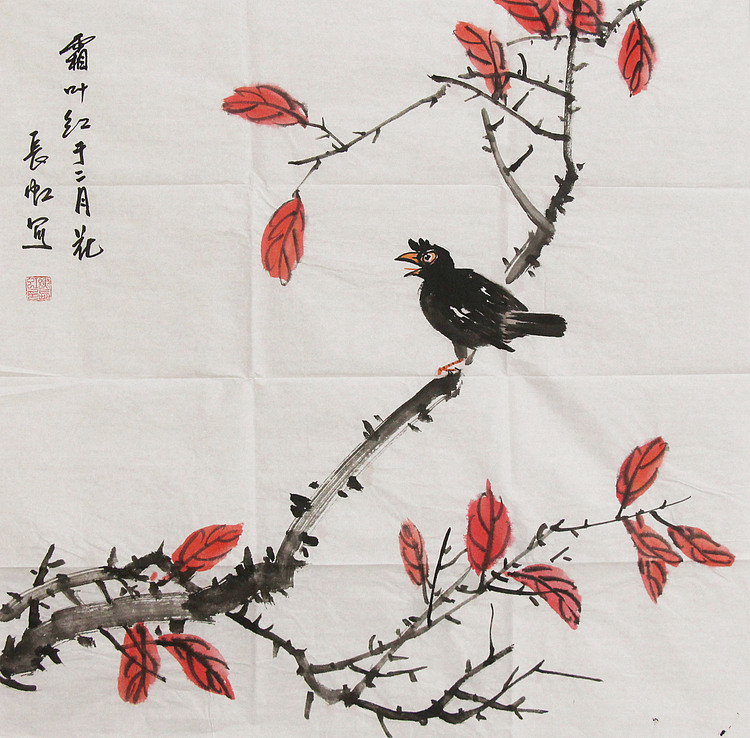 霜叶红于二月花
長虹写